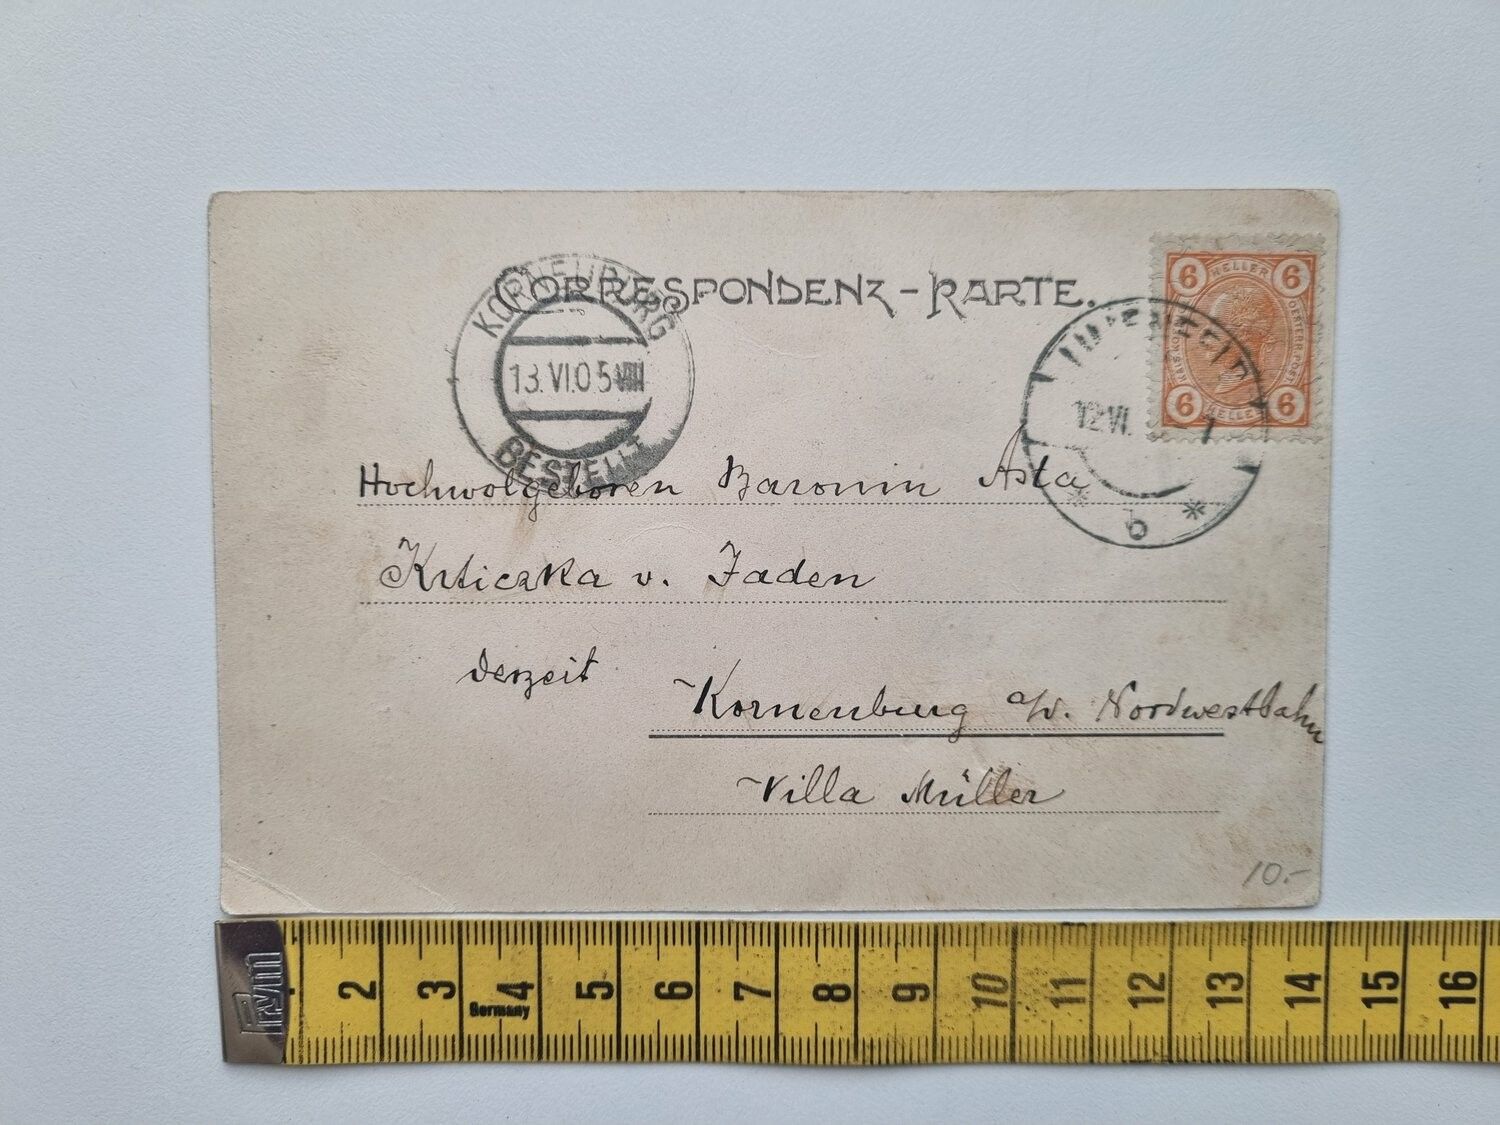 CORRESPONDENZ-KARTE.
KORNEUBURG
13.VI.05 VIII
BESTELLT
6 HELLER 6
OESTERR. POST
6 HELLER 6
12 VI.
* 6 *
Hochwolgeboren Baronin Asta
Krticzka v. Jaden
derzeit
Korneuburg a/d. Nordwestbahn
Villa Müller
10.-
Prym
2 3 4 5 6 7 8 9 10 11 12 13 14 15 16
Germany